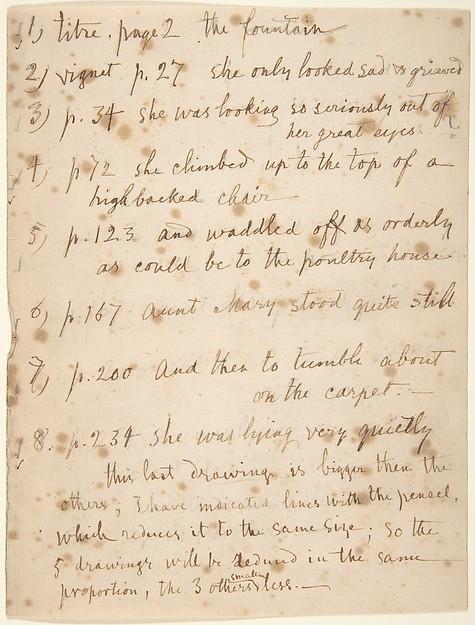 1) titre. page 2 the fountain
2) vignet p. 27 she only looked sad & grieved
3) p. 34 she was looking so seriously out of
her great eyes
4) p 72 she climbed up to the top of a
high backed chair
5) p. 123 and waddled off as orderly
as could be to the poultry house
6) p. 167 Aunt Mary stood quite still
7) p. 200 And then to tumble about
on the carpet. —
8. p. 234 she was lying very quietly
this last drawing is bigger then the
others; I have indicated lines with the pencel,
which reduces it to the same size; so the
5 drawings will be in the same
proportion, the 3 others smaller less. —